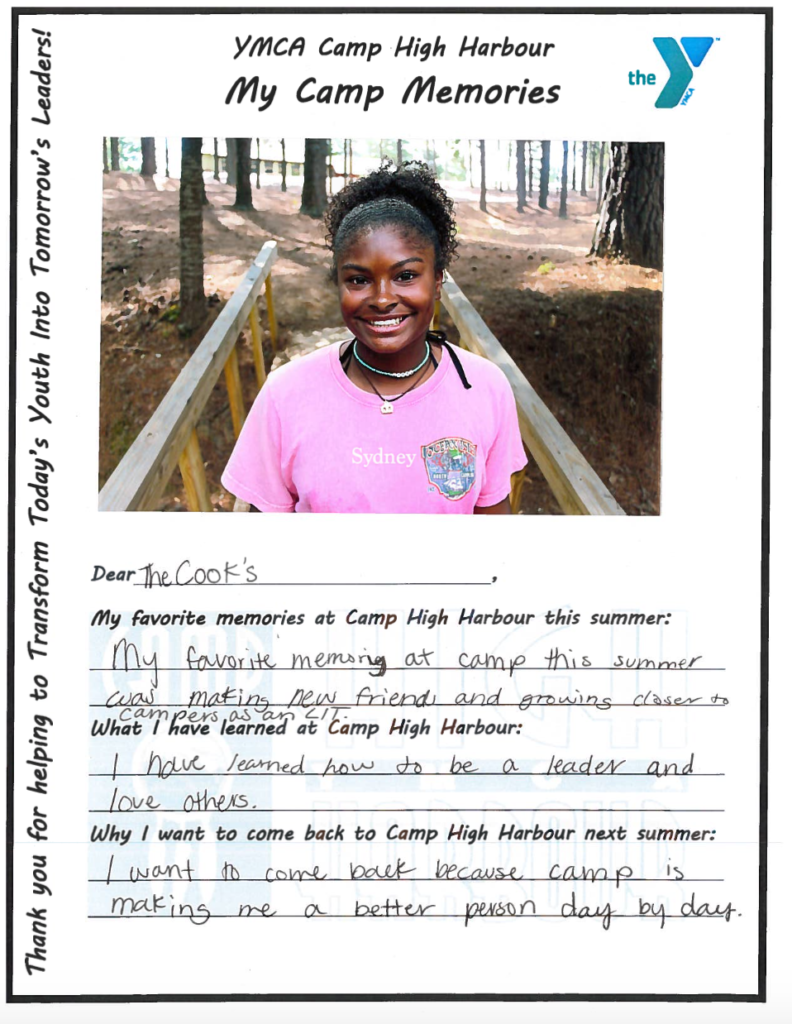 YMCA Camp High Harbour
My Camp Memories
the Y
YMCA
Thank you for helping to Transform Today's Youth Into Tomorrow's Leaders!
Sydney
Dear The Cook's,
My favorite memories at Camp High Harbour this summer:
My favorite memory at camp this summer
was making new friends and growing closer to
campers as an LIT.
What I have learned at Camp High Harbour:
I have learned how to be a leader and
love others.
Why I want to come back to Camp High Harbour next summer:
I want to come back because camp is
making me a better person day by day.